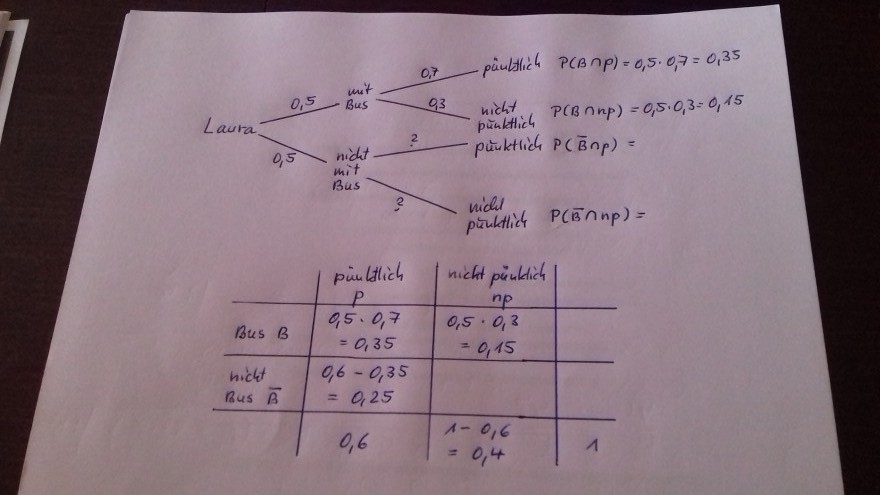 0,7 pünktlich P(B∩p) = 0,5·0,7 = 0,35
0,5 mit
Bus
0,3 nicht
pünktlich P(B∩np) = 0,5·0,3 = 0,15
Laura
? pünktlich P(B̅∩p) =
0,5 nicht
mit
Bus
? nicht
pünktlich P(B̅∩np) =
pünktlich nicht pünklich
p np
Bus B 0,5 · 0,7 0,5 · 0,3
= 0,35 = 0,15
nicht 0,6 - 0,35
Bus B̅ = 0,25
0,6 1 - 0,6 1
= 0,4